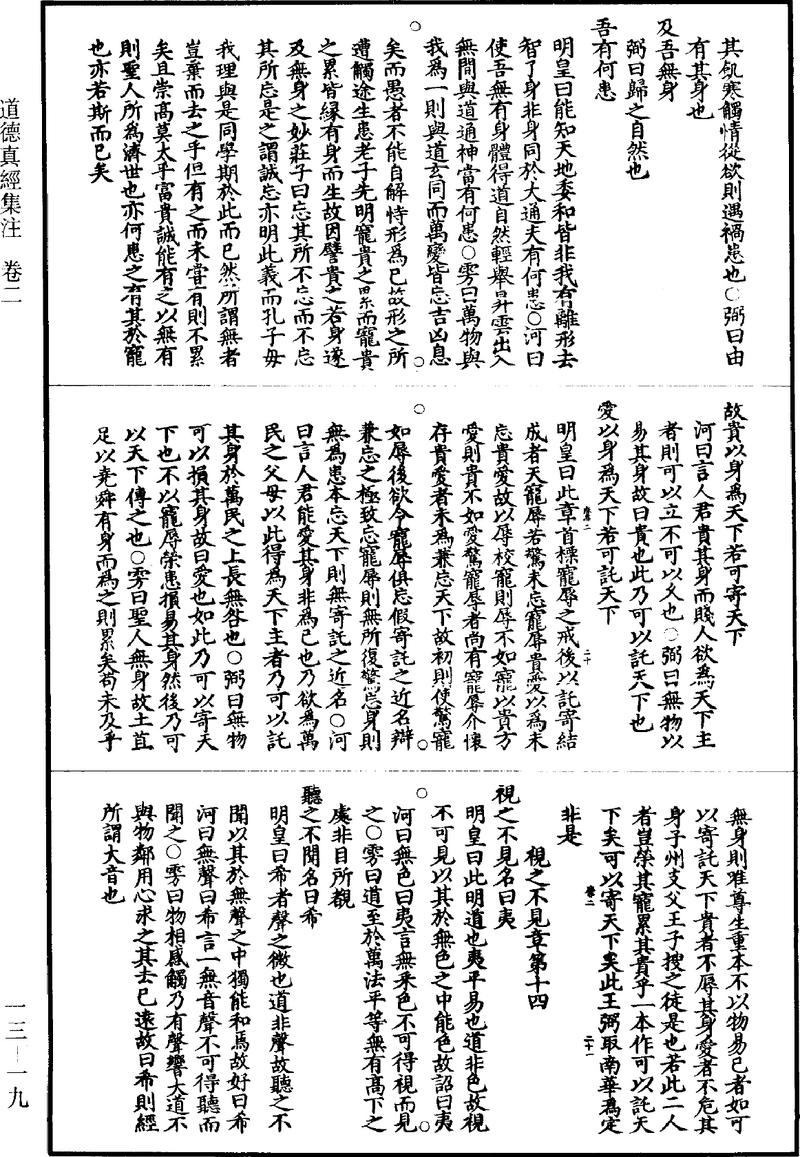 道德真經集注　卷二
一三—一九
其飢寒觸情從欲則遇禍患也○弼曰由
有其身也
及吾無身
弼曰歸之自然也
吾有何患
明皇曰能知天地委和皆非我有離形去
智了身非身同於大通夫有何患○河曰
使吾無有身體得道自然輕舉昇雲出入
無間與道通神當有何患○雱曰萬物與
我為一則與道玄同而萬變皆忘吉凶息
矣而愚者不能自解恃形為已故形之所
遭觸途生患老子先明寵貴之累而寵貴
之累皆緣有身而生故因譬貴之若身遂
及無身之妙莊子曰忘其所不忘而不忘
其所忘是之謂誠忘亦明此義而孔子毋
我理與是同學期於此而已然所謂無者
豈棄而去之乎但有之而未嘗有則不累
矣且崇高莫大乎富貴誠能有之以無有
則聖人所為濟世也亦何患之有其於寵
也亦若斯而已矣
故貴以身為天下若可寄天下
河曰言人君貴其身而賤人欲為天下主
者則可以立不可以久也○弼曰無物以
易其身故曰貴也此乃可以託天下也
愛以身為天下若可託天下
明皇曰此章首標寵辱之戒後以託寄結
成者夫寵辱若驚未忘寵辱貴愛以為未
忘貴愛故以辱校寵則辱不如寵以貴方
愛則貴不如愛驚寵辱者尚有寵辱介懷
存貴愛者未為兼忘天下故初則使驚寵
如辱後欲令寵辱俱忘假寄託之近名辯
兼忘之極致忘寵辱則無所復驚忘身則
無為患本忘天下則無寄託之近名○河
曰言人君能愛其身非為己也乃欲為萬
民之父母以此得為天下主者乃可以託
其身於萬民之上長無咎也○弼曰無物
可以損其身故曰愛也如此乃可以寄天
下也不以寵辱榮患損易其身然後乃可
以天下傳之也○雱曰聖人無身故土苴
足以堯舜有身而為之則累矣苟未及乎
無身則唯尊生重本不以物易已者如可
以寄託天下貴者不辱其身愛者不危其
身子州支父王子搜之徒是也若此二人
者豈榮其寵累其貴乎一本作可以託天
下矣可以寄天下矣此王弼取南華為定
非是
視之不見章第十四
視之不見名曰夷
明皇曰此明道也夷平易也道非色故視
不可見以其於無色之中能色故詔曰夷
河曰無色曰夷言無采色不可得視而見
之○雱曰道至於萬法平等無有高下之
處非目所覩
聽之不聞名曰希
明皇曰希者聲之微也道非聲故聽之不
聞以其於無聲之中獨能和焉故好曰希
河曰無聲曰希言一無音聲不可得聽而
聞之○雱曰物相感觸乃有聲響大道不
與物鄰用心求之其去已遠故曰希則經
所謂大音也